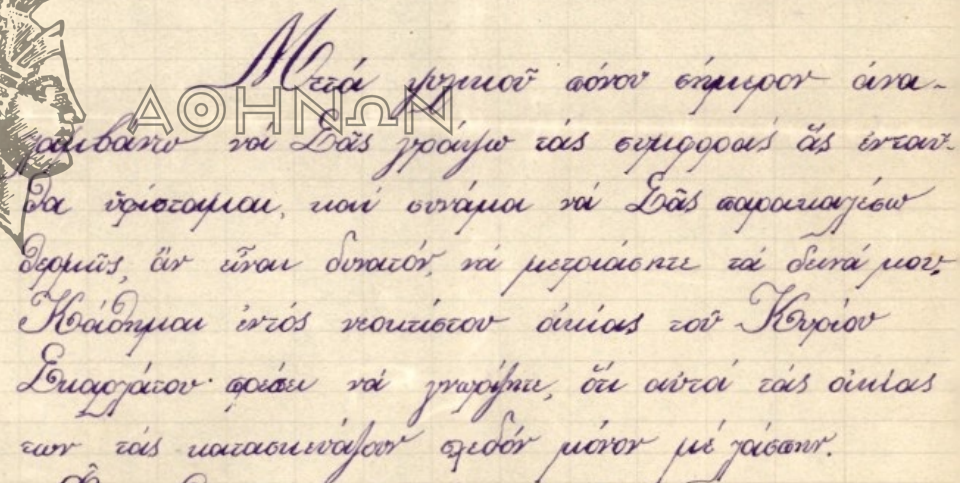 ΑΘΗΝΩΝ
Μετά ψυχικοῦ πόνου σήμερον ἀνα-
λαμβάνω νά Σᾶς γράψω τάς συμφοράς ἅς ἐνταῦ-
θα ὑφίσταμαι, καί συνάμα νά Σᾶς παρακαλέσω
θερμῶς, ἄν εἶναι δυνατόν, νά μετριάσητε τά δεινά μου.
Κάθημαι ἐντός νεοκτίστου οἰκίας τοῦ Κυρίου
πρέπει νά γνωρίζητε, ὅτι αὐτά τάς οἰκίας
των τάς κατασκευάζουν σχεδόν μόνον μέ λάσπην.